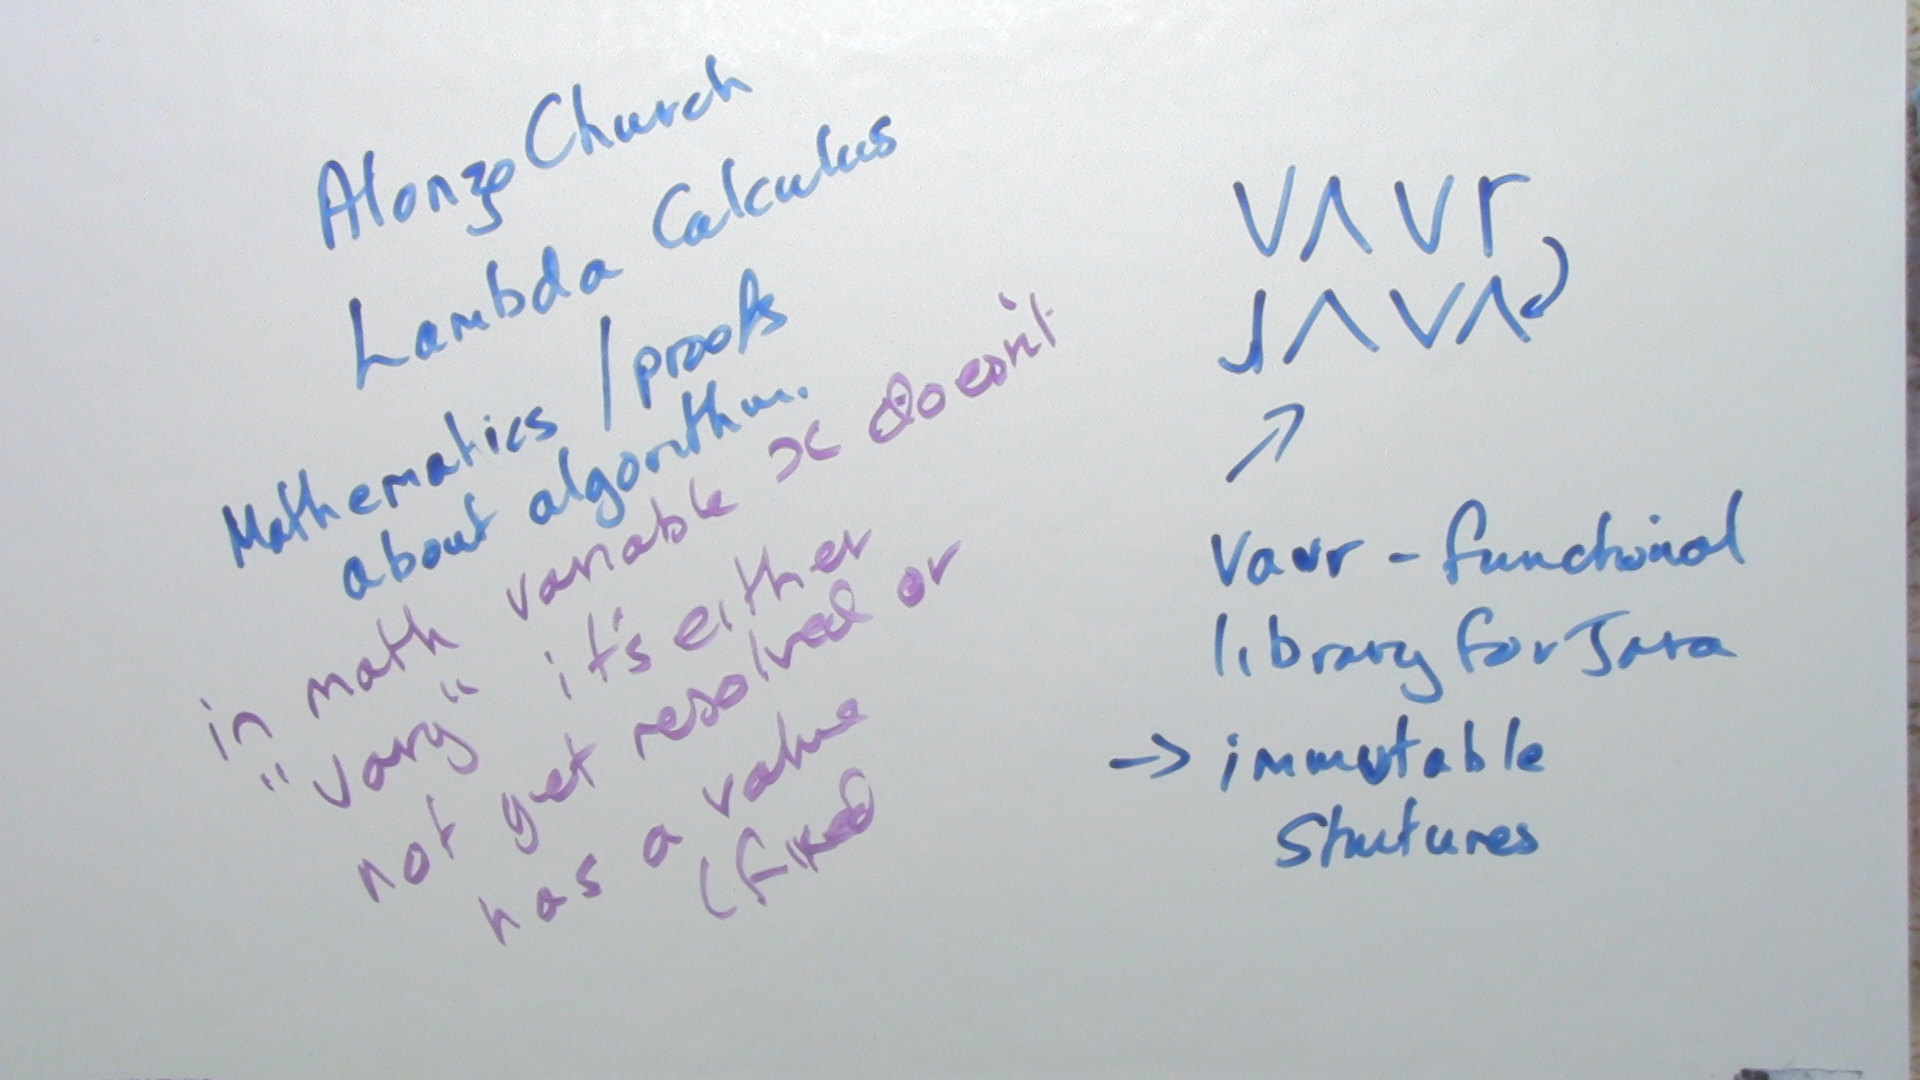 Alonzo Church
Lambda Calculus
Mathematics / proofs
about algorithm.
in math variable x doesn't
"vary" it's either
not yet resolved or
has a value
(fixed
VΛVr
JΛVΛ
Vavr - functional
library for Java
→ immutable
Structures